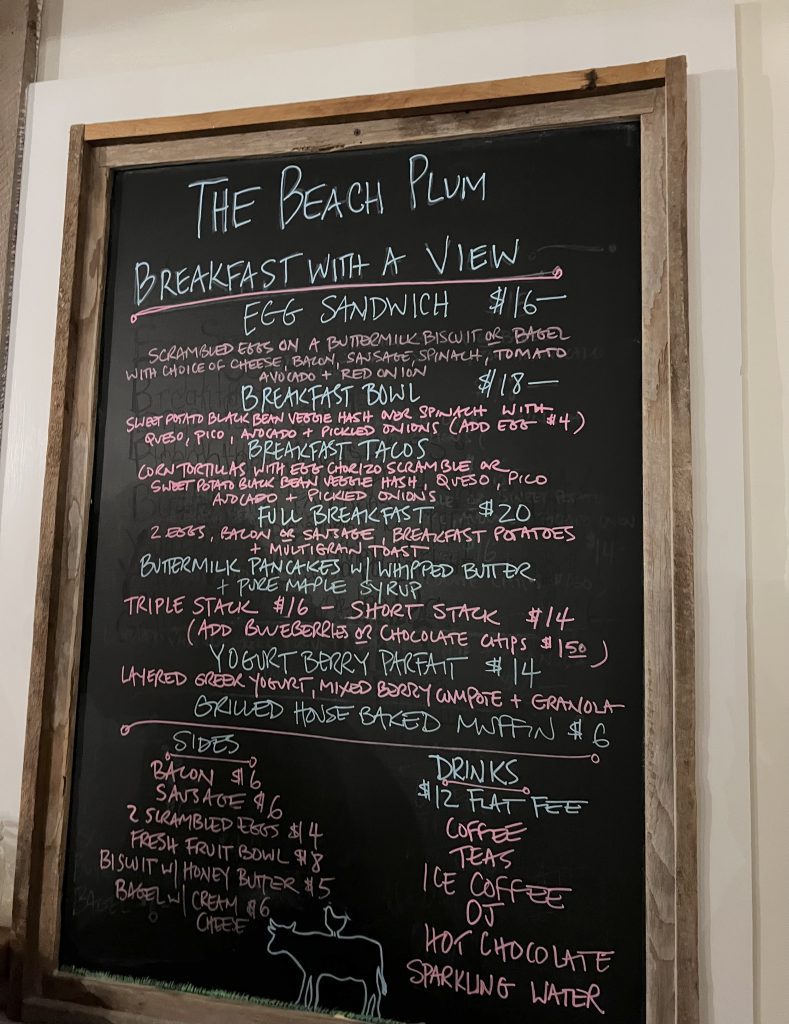 THE BEACH PLUM
BREAKFAST WITH A VIEW
EGG SANDWICH $16—
SCRAMBLED EGGS ON A BUTTERMILK BISCUIT OR BAGEL
WITH CHOICE OF CHEESE, BACON, SAUSAGE, SPINACH, TOMATO
AVOCADO + RED ONION
BREAKFAST BOWL $18—
SWEET POTATO BLACK BEAN VEGGIE HASH OVER SPINACH WITH
QUESO, PICO, AVOCADO + PICKLED ONIONS (ADD EGG $4)
BREAKFAST TACOS
CORN TORTILLAS WITH EGG CHORIZO SCRAMBLE OR
SWEET POTATO BLACK BEAN VEGGIE HASH, QUESO, PICO
AVOCADO + PICKLED ONIONS
FULL BREAKFAST $20
2 EGGS, BACON OR SAUSAGE, BREAKFAST POTATOES
+ MULTIGRAIN TOAST
BUTTERMILK PANCAKES W/ WHIPPED BUTTER
+ PURE MAPLE SYRUP
TRIPLE STACK $16 – SHORT STACK $14
(ADD BLUEBERRIES OR CHOCOLATE CHIPS $1 50)
YOGURT BERRY PARFAIT $14
LAYERED GREEK YOGURT, MIXED BERRY COMPOTE + GRANOLA
GRILLED HOUSE BAKED MUFFIN $6
SIDES
BACON $6
SAUSAGE $6
2 SCRAMBLED EGGS $4
FRESH FRUIT BOWL $8
BISCUIT W/ HONEY BUTTER $5
BAGEL W/ CREAM $6
CHEESE
DRINKS
$12 FLAT FEE
COFFEE
TEAS
ICE COFFEE
OJ
HOT CHOCOLATE
SPARKLING WATER